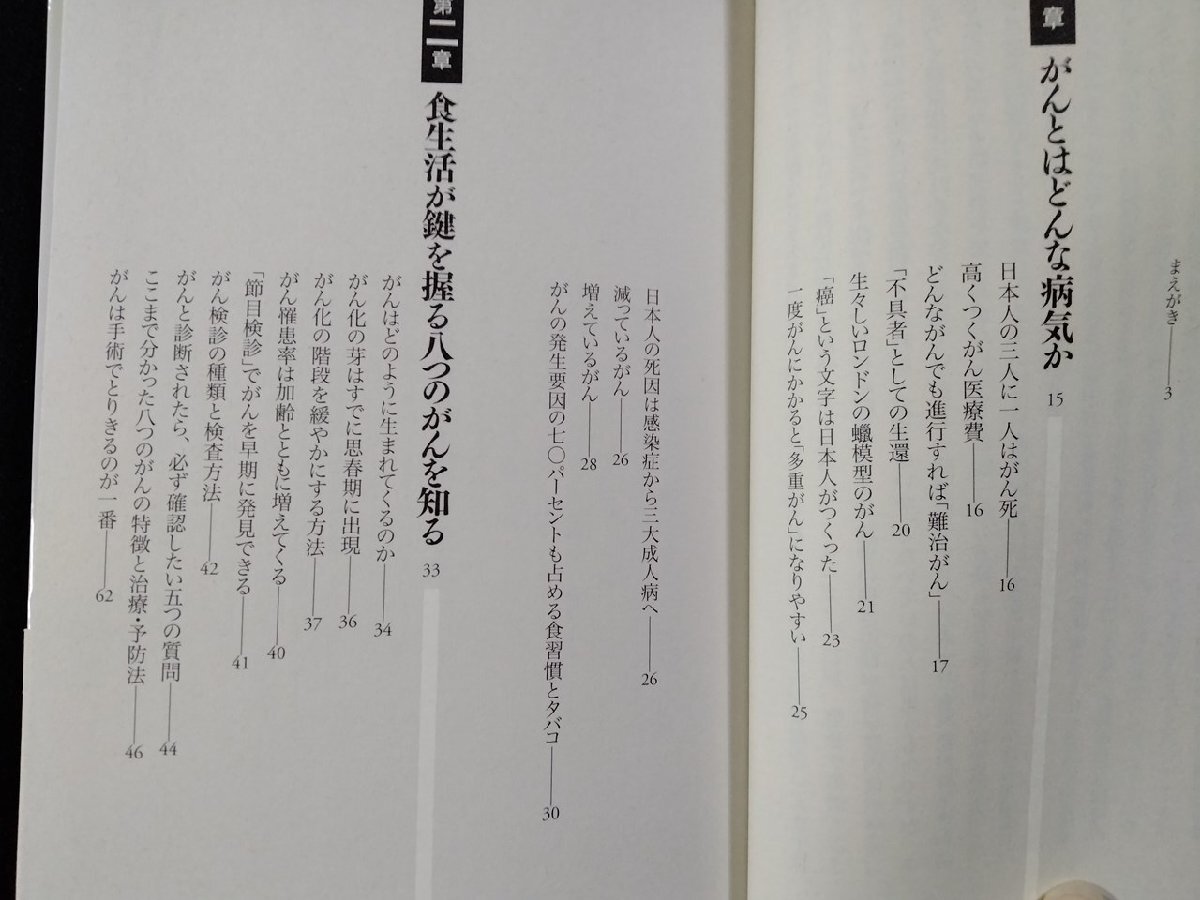 まえがき 3
章 がんとはどんな病気か 15
日本人の三人に一人はがん死 16
高くつくがん医療費 16
どんながんでも進行すれば「難治がん」 17
「不具者」としての生還 20
生々しいロンドンの蠟模型のがん 21
「癌」という文字は日本人がつくった 23
一度がんにかかると「多重がん」になりやすい 25
日本人の死因は感染症から三大成人病へ 26
減っているがん 26
増えているがん 28
がんの発生要因の七〇パーセントも占める食習慣とタバコ 30
第二章 食生活が鍵を握る八つのがんを知る 33
がんはどのように生まれてくるのか 34
がん化の芽はすでに思春期に出現 36
がん化の階段を緩やかにする方法 37
がん罹患率は加齢とともに増えてくる 40
「節目検診」でがんを早期に発見できる 41
がん検診の種類と検査方法 42
がんと診断されたら、必ず確認したい五つの質問 44
ここまで分かった八つのがんの特徴と治療・予防法 46
がんは手術でとりきるのが一番 62